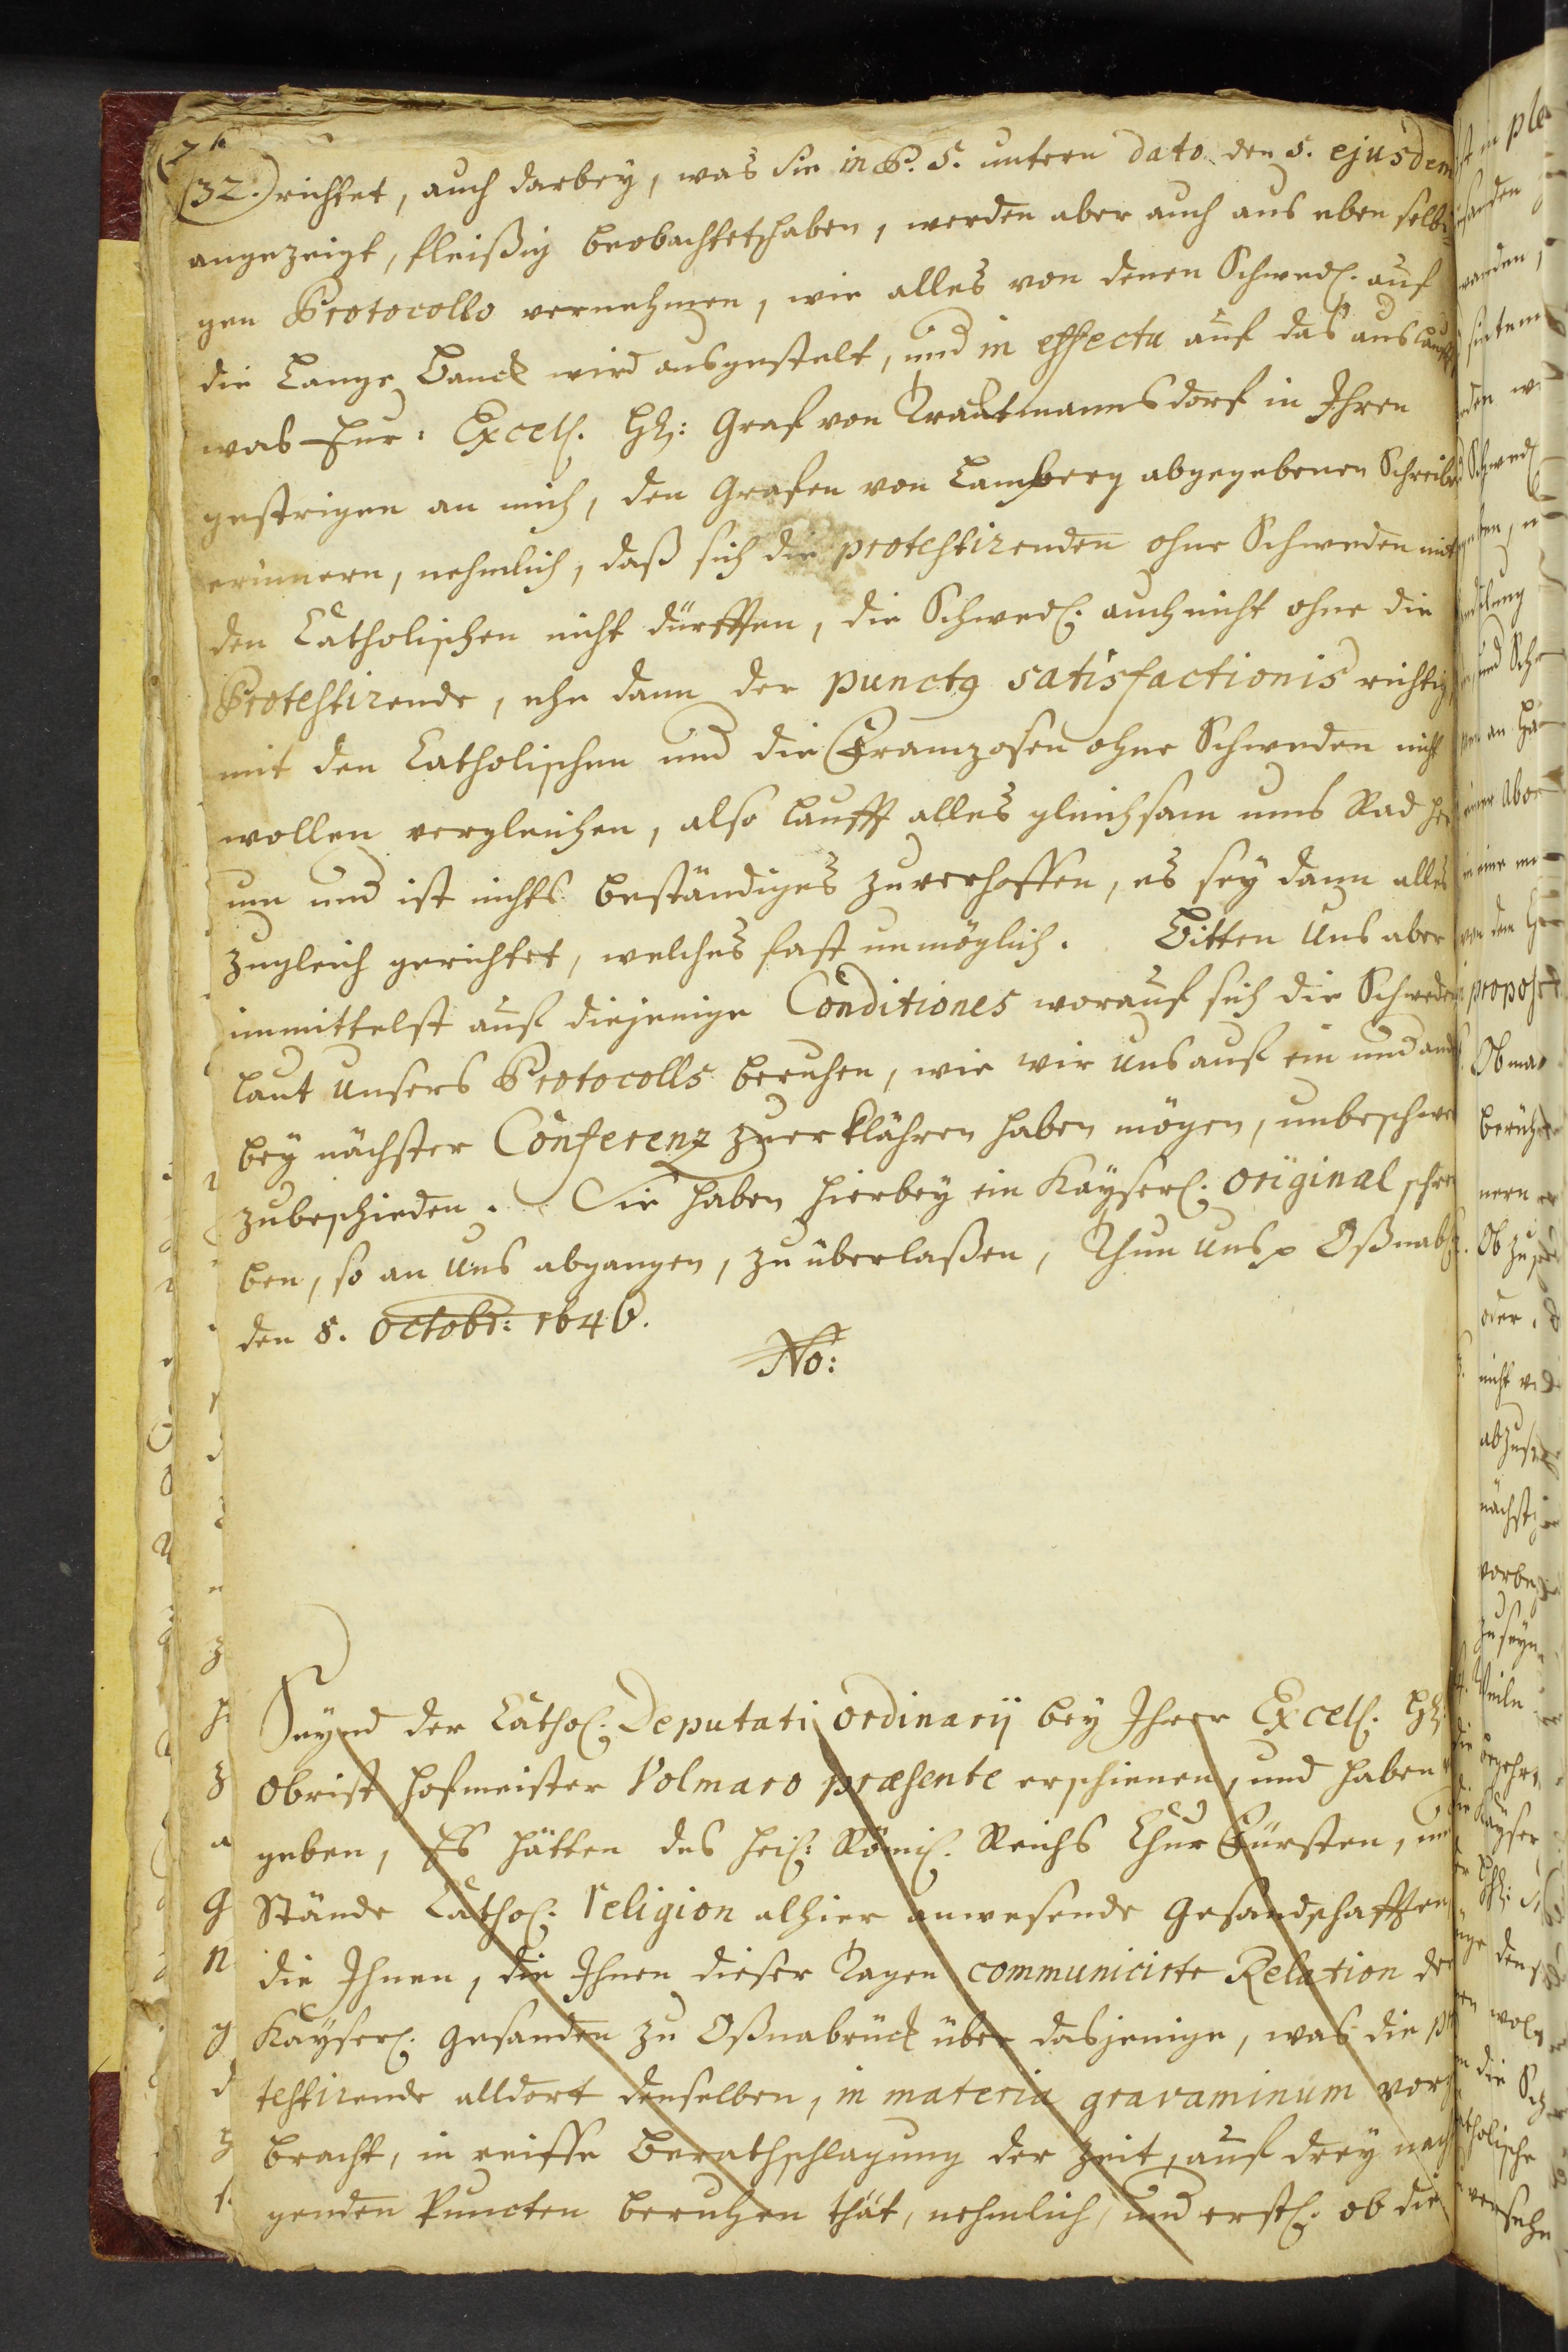 (32.) richtet, auch darbey, was sie in P. S. untern dato den 5. ejusdem
angezeigt, fleißig beobachtet haben, werden aber auch aus eben selbi-
gen Protocollo vernehmen, wie alles von denen Schwed. auf
die Lange Banck wird ausgestelt, und in effectu auf das auslaufft
was Eur: Excell. Hh: Graf von Trautmannsdorf in Ihren
gestrigen an mich, den Grafen von Lamberg abgegebenen Schreiben
erinnern, nehmlich, daß sich die protestirenden ohne Schweden mit
den Catholischen nicht dürffen, die Schwed. auch nicht ohne die
Protestirende, ehe dann der punctus satisfactionis richtig
mit den Catholischen und die Franzosen ohne Schweden nicht
wollen vergleichen, also laufft alles gleichsam ums Rad her
um und ist nichts beständiges zuverhoffen, es sey dann alles
zugleich gerichtet, welches fast unmöglich. Bitten uns aber
immittelst auf diejenige Conditiones worauf sich die Schweden
laut unsers Protocolls beruhen, wie wir uns auf ein und and
bey nächster Conferenz zuerklähren haben mögen, unbeschwe
zubeschieden. Sie haben hierbey ein Kayserl. original schrei
ben, so an uns abgangen, zu überlaßen, Thun uns p Oßnab
den 8. Octobr: 1646.
No:
Seynd der Cathol. Deputati ordinarij bey Ihrer Excell. Hh:
Obrist hofmeister Volmaro præsente erschienen, und haben
geben, Es hätten des heil: Römis. Reichs ChurFürsten, und
Stände Cathol. religion alhier anwesende Gesandschafften
die Ihnen, die Ihnen dieser Tagen communicirte Relation der
Kayserl. Gesanden zu Oßnabrück über dasjenige, was die pro
testirende alldort denselben, in materia gravaminum vorge
bracht, in reiffe Berathschlagung der Zeit, auf drey nachfol
genden Puncten beruhen thät, nehmlich, und erstl. ob die